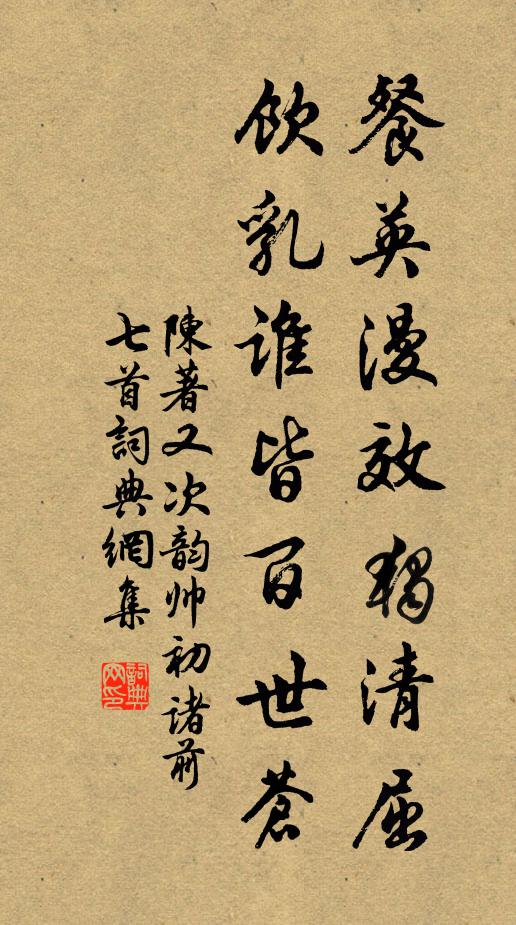 餐英漫效独清屈
飲乳谁皆百世蒼
陳著又次韵帅初諸前
七首詞典網集
詞典网印